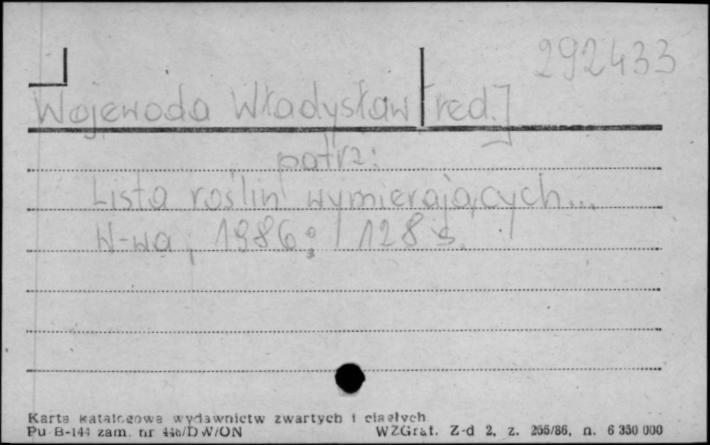 292433
Wojewoda Władysław [red.]
patrz:
Lista roślin wymierających...
W-wa, 1986; 128 s.
Karta katalogowa wydawnictw zwartych i ciągłych
Pu-B-144 zam. nr 446/DW/ON WZGraf. Z-d 2, z. 255/86, n. 6 350 000